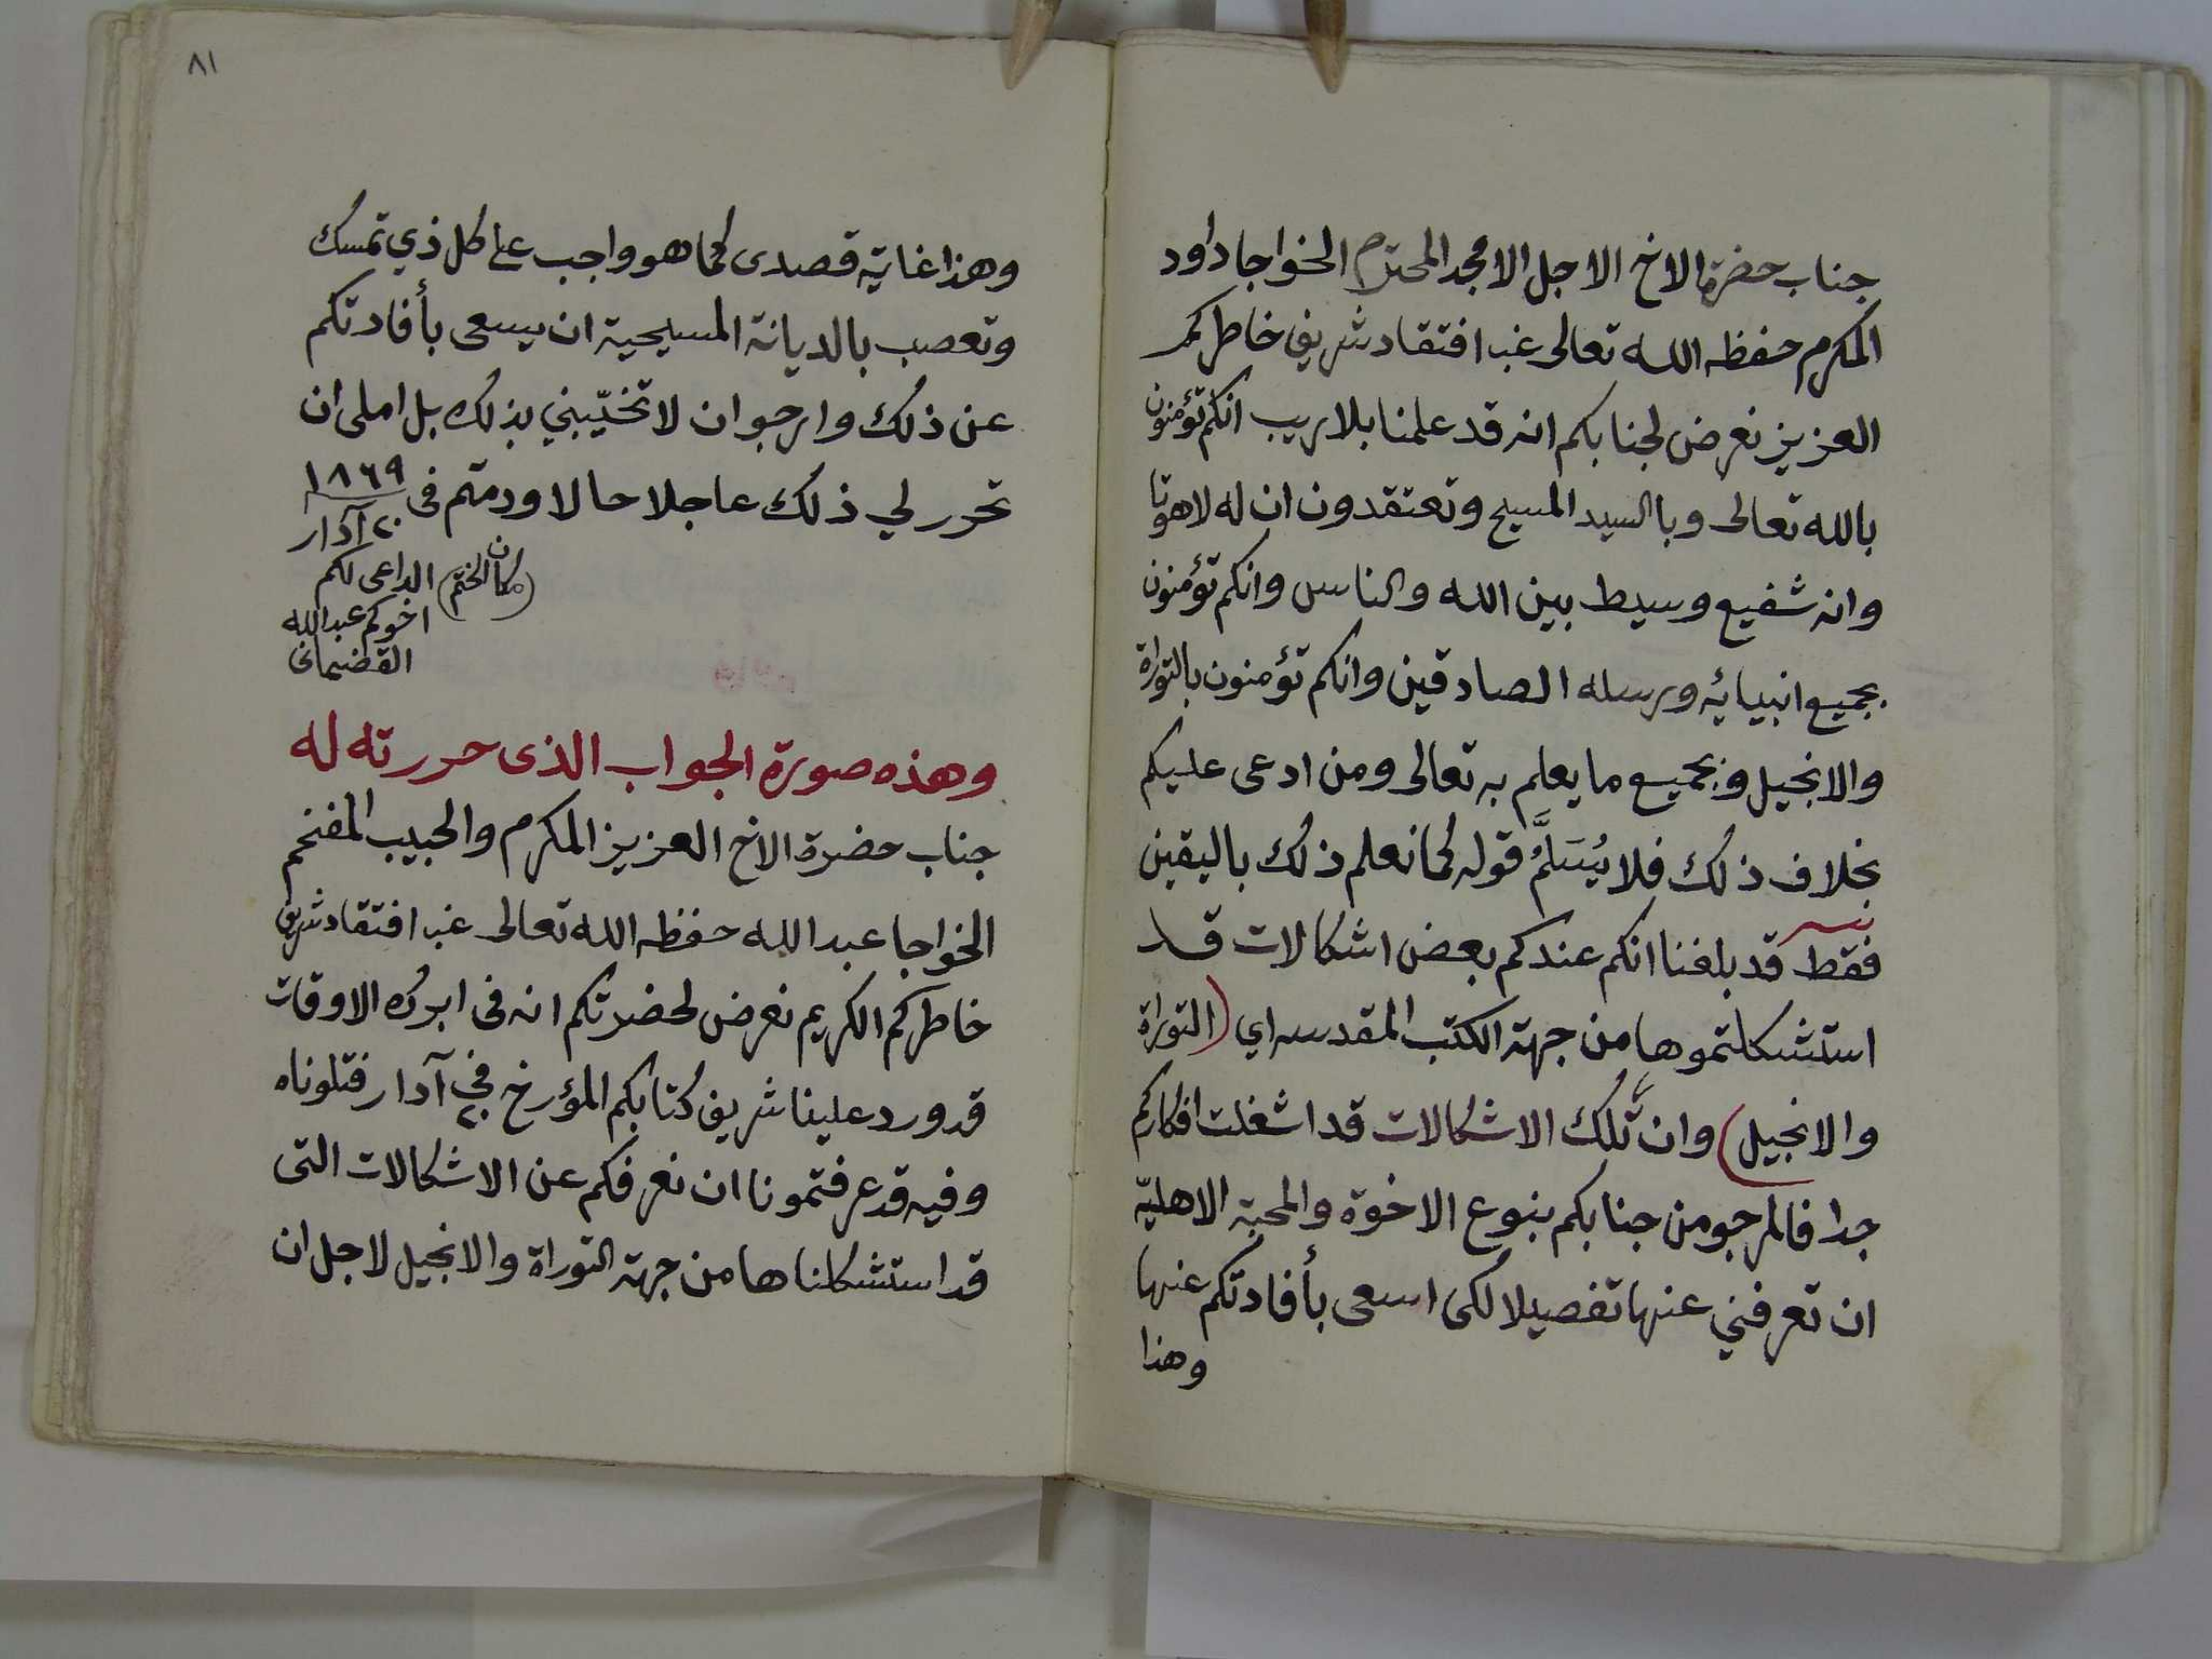 جناب حضرة الاخ الاجل الامجد المحترم الخواجا داود
المكرم حفظه الله تعالى غب افتقاد شريف خاطركم
العزيز نعرض لجنابكم انه قد علمنا بلا ريب انكم تؤمنون
بالله تعالى وبالسيد المسيح وتعتقدون ان له لاهوتا
وانه شفيع وسيط بين الله والناس وانكم تؤمنون
بجميع انبيائه ورسله الصادقين وانكم تؤمنون بالتوراة
والانجيل وبجميع ما يعلم به تعالى ومن ادعى عليكم
بخلاف ذلك فلا يُسَلَّمُ قوله كما نعلم ذلك باليقين
فقط قد بلغنا انكم عندكم بعض اشكالات قد
استشكلتموها من جهة الكتب المقدسه اي (التوراة
والانجيل) وان تلك الاشكالات قد اشغلت افكاركم
جدا فالمرجو من جنابكم بنوع الاخوة والمحبة الاهلية
ان تعرفني عنها تفصيلا لكى اسعى بأفادتكم عنها
وهذا
٨١
وهذا غاية قصدى كما هو واجب على كل ذي تمسك
وتعصب بالديانة المسيحية ان يسعى بأفادتكم
عن ذلك وارجو ان لا تخيّبني بذلك بل املى ان
تحرر لي ذلك عاجلا حالا ودمتم فى ١٨٦٩
٢٠ آدار
(مكان الختم) الداعى لكم
اخوكم عبدالله
القضيمانى
وهذه صورة الجواب الذى حررته له
جناب حضرة الاخ العزيز المكرم والحبيب المفخم
الخواجا عبدالله حفظه الله تعالى غب افتقاد شريف
خاطركم الكريم نعرض لحضرتكم انه فى ابرك الاوقات
قد ورد علينا شريف كتابكم المؤرخ في ٢٠ آدار فتلوناه
وفيه قد عرفتمونا ان نعرفكم عن الاشكالات التى
قد استشكلناها من جهة التوراة والانجيل لاجل ان